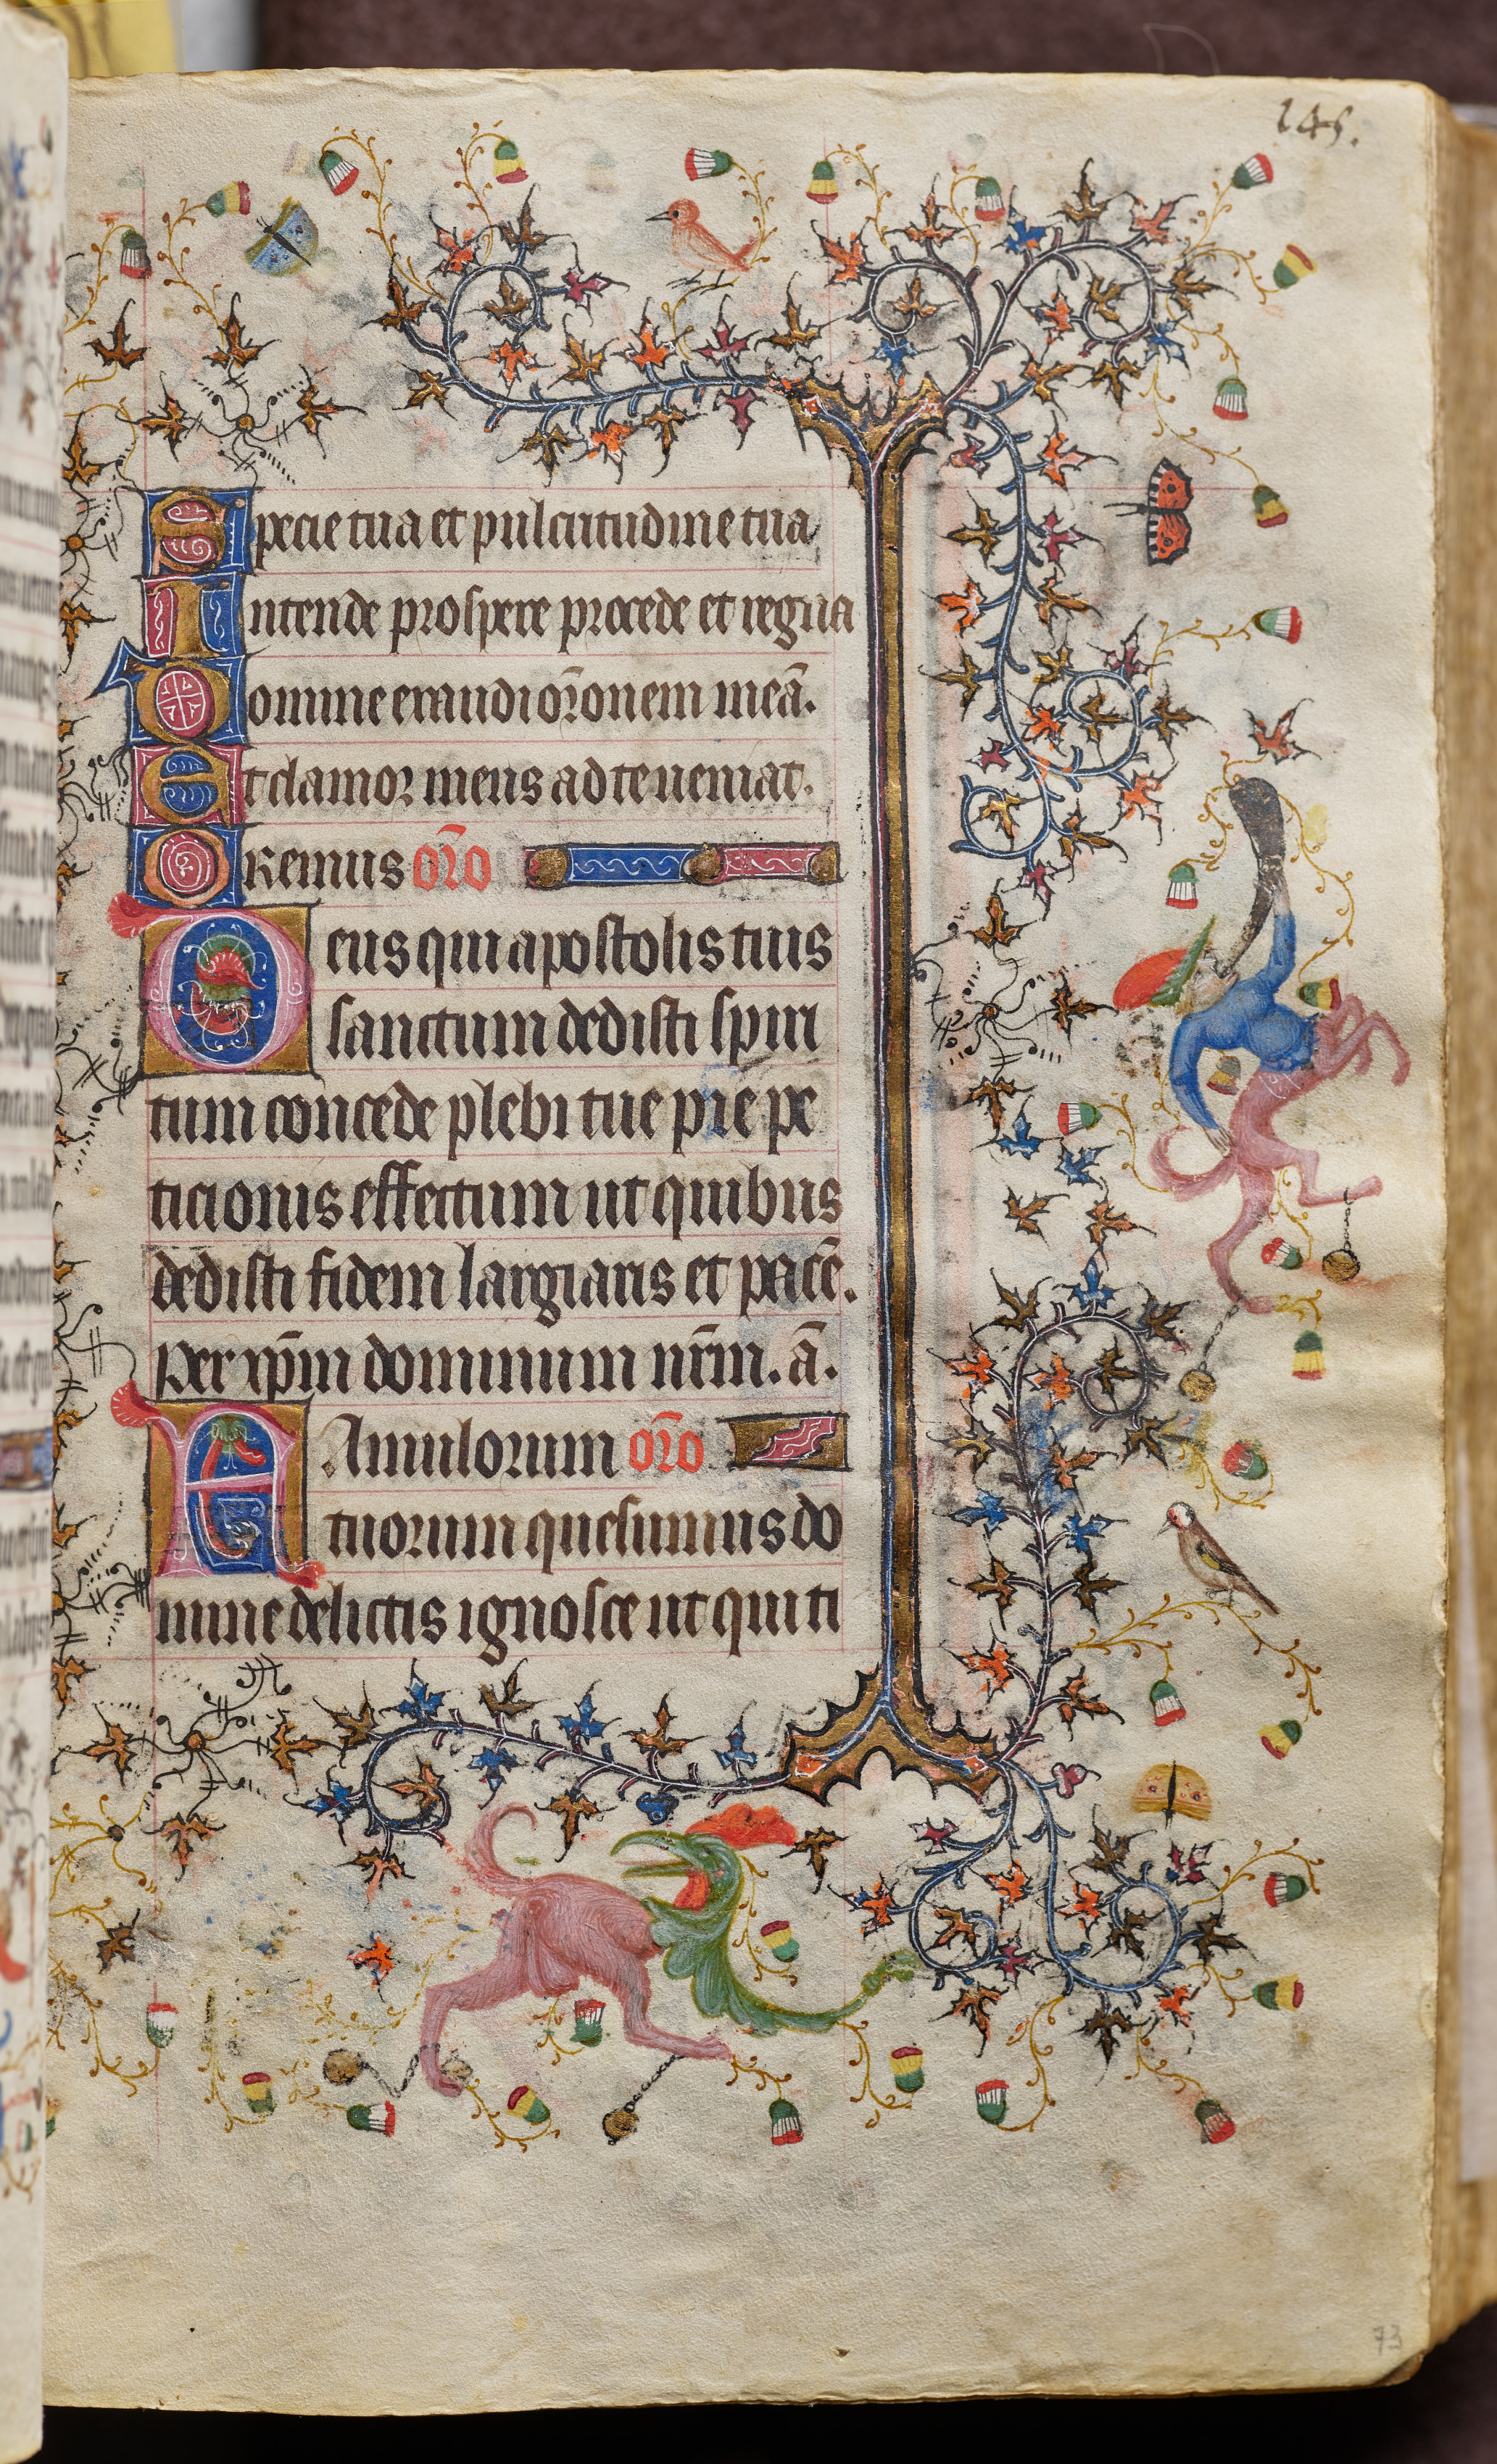 145.
Specie tua et pulcritudine tua
Intende prospere procede et regna
Domine exaudi orõnem meã.
Et clamor meus ad te ueniat.
Oremus orõ
Deus qui apostolis tuis
sanctum dedisti spiri
tum concede plebi tue pie pe
ticionis effectum ut quibus
dedisti fidem largiaris et pacẽ.
Per xp̃m dominum nr̃m. ã.
FAmulorum orõ
tuorum quesumus do
mine delictis ignosce ut qui ti
73